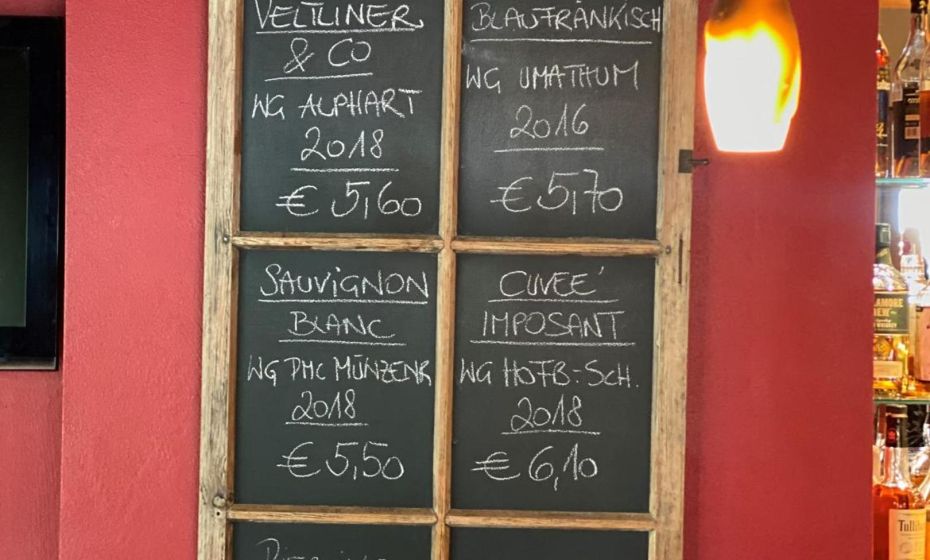 VELTLINER
& CO
WG ALPHART
2018
€ 5,60
BLAUFRÄNKISCH
WG UMATHUM
2016
€ 5,70
SAUVIGNON
BLANC
WG PMC MÜNZENR
2018
€ 5,50
CUVEÉ
IMPOSANT
WG HOFB.-SCH.
2018
€ 6,10